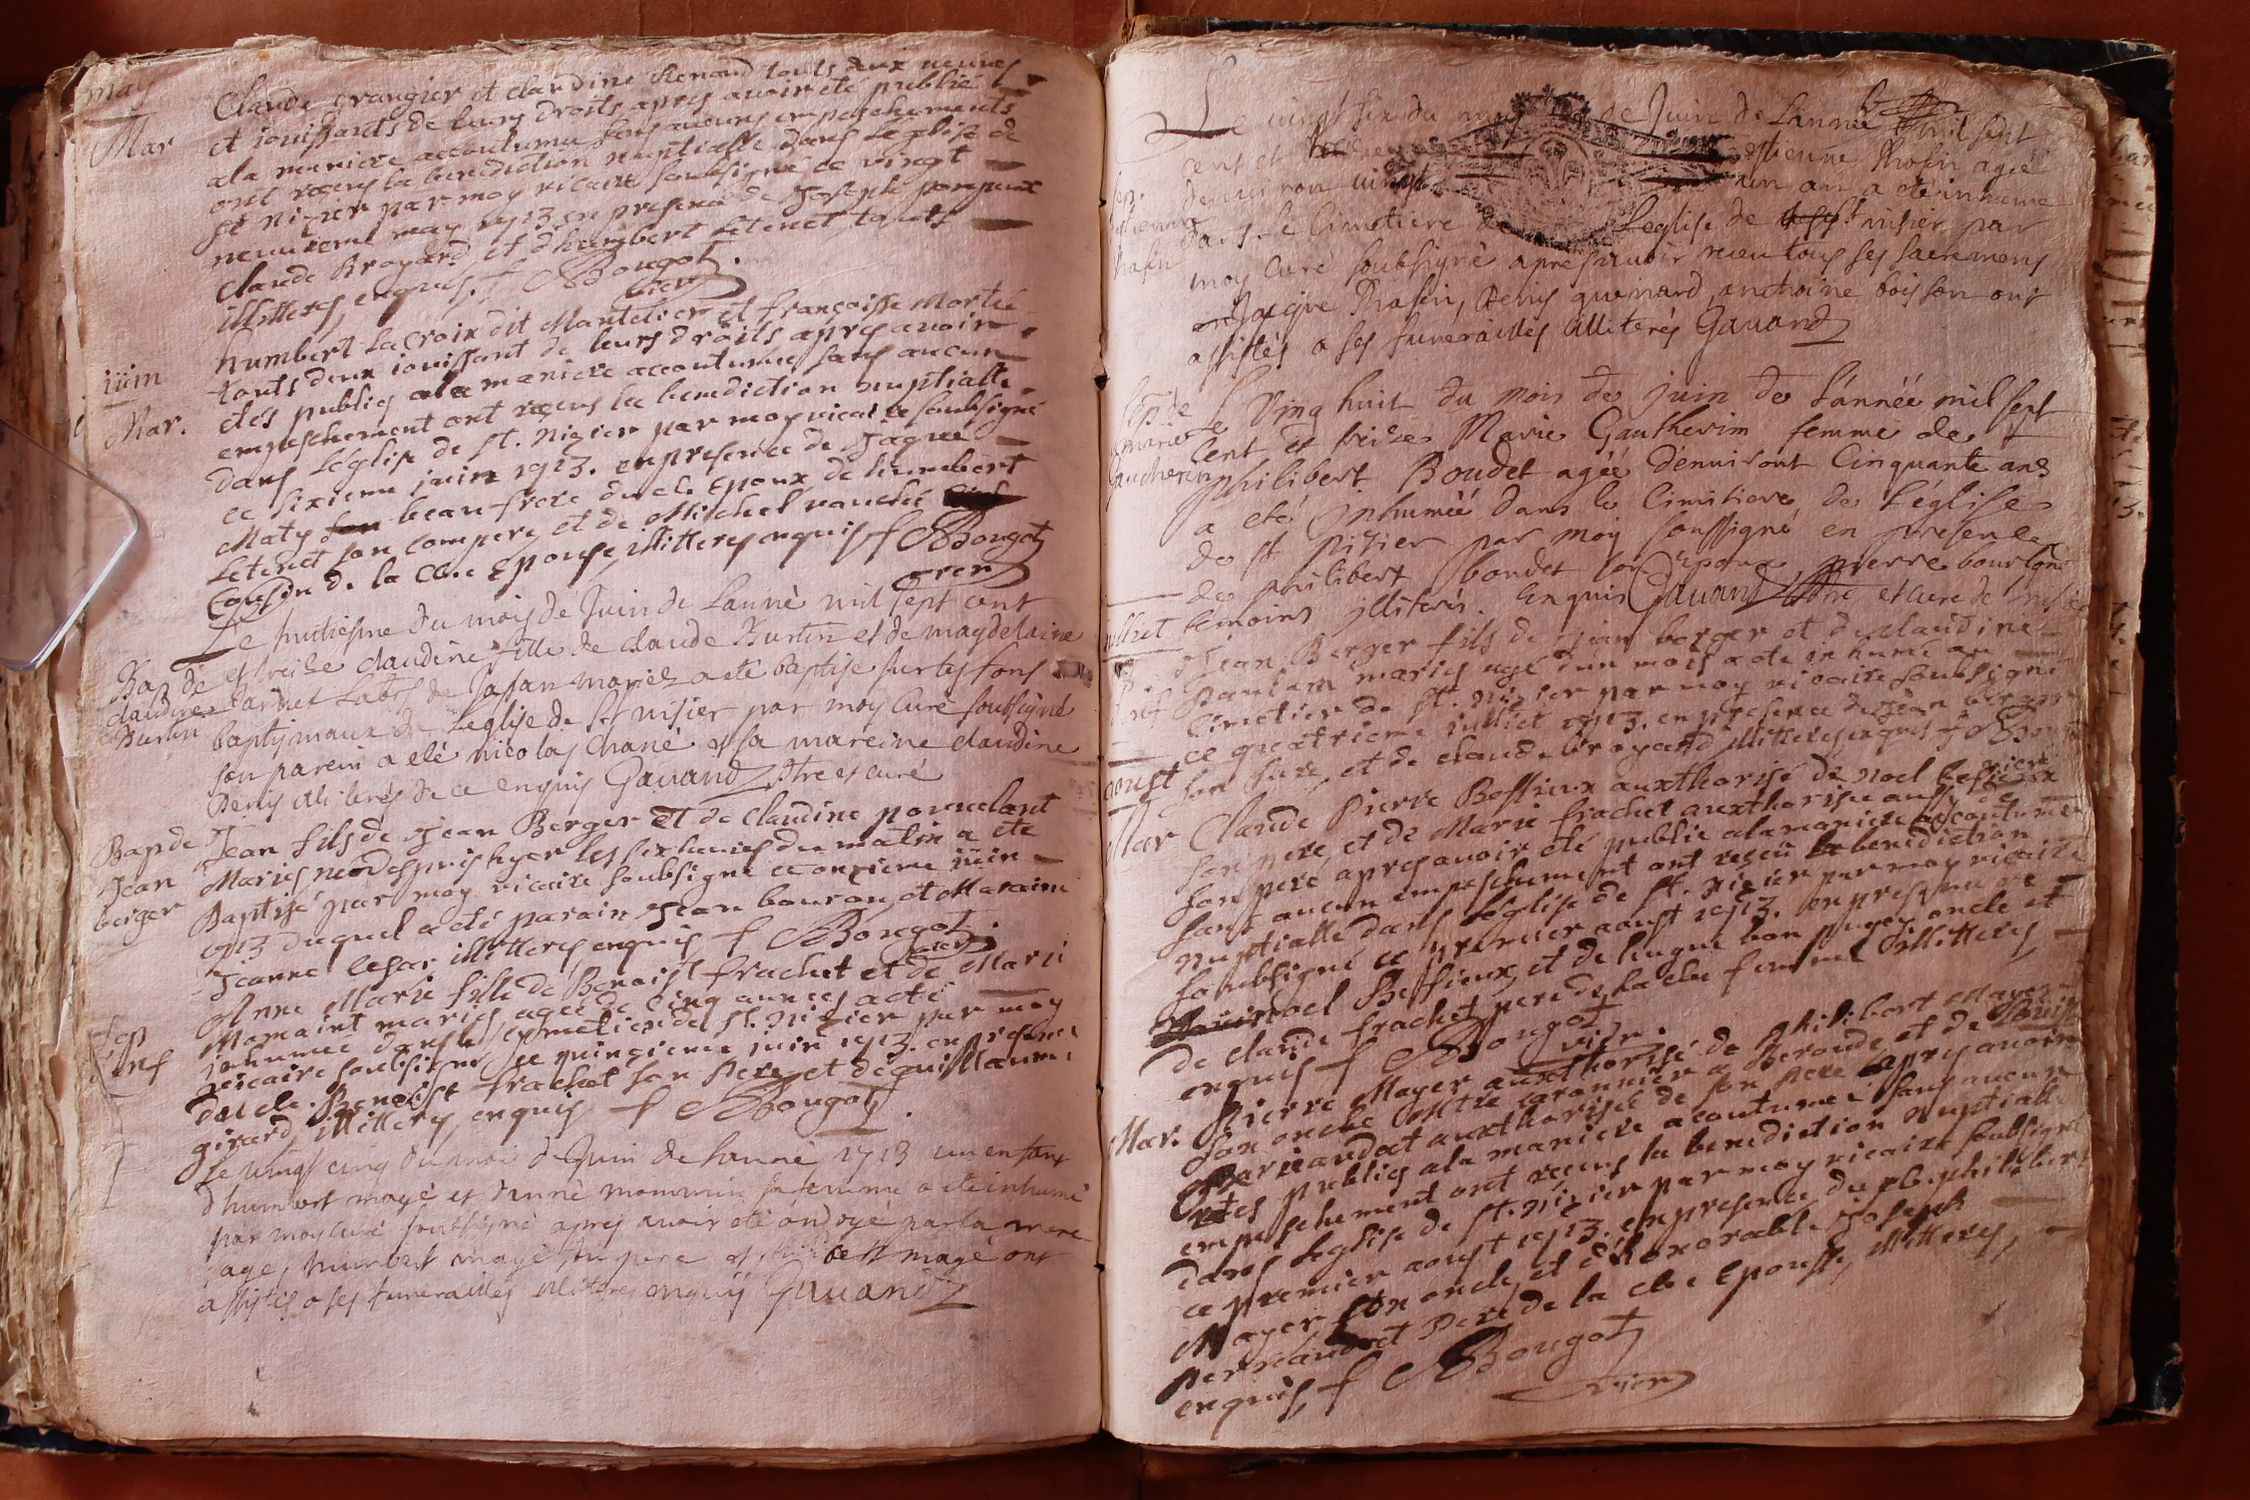 may
Mar
Claude grangier et claudine Renaud touts deux
et jouissants de leurs droits apres avoir ete publié
ala maniere accoutumee sans aucuns empeschements
ont receus la benediction nuptialle dans Leglise de
st nizier par moy vicaire soubsigné ce vingt
neuvieme may 1713 en presence de Joseph
claude Broyard et d'humbert Letenet touts
illitteres enquis. f Bougot
vicr
iüin
Mar.
humbert Lacroix dit Mantelier et francoise Mortie
touts deux jouissant de leurs droits apres avoir
etes publies ala maniere accoutumee sans aucun
empeschement ont receus la benediction nuptialle
dans Léglise de st. nizier par moy vicaire soubsigné
ce sixieme juin 1713. en presence de Jaque
Maty beau frere du cl. epoux de humbert
Letenet son compere et de Michel
Cousin de la cl.e Epouse, illitteres enquis f Bougot
vicr
Bap de
claudine
Burtin
Le huitiesme du mois de Juin de Lannè mil sept cent
et treize claudine fille de claude Burtin et de magdelaine
de Jasan mariez a eté baptise sur les fons
baptismaux de Leglise de st nisier par moy Curé soubsigné
son parein a eté nicolas Chané et sa mareine claudine
Denis illiterés de ce enquis Gavand ptre et curé
Bap de
Jean
berger
Jean fils de Jean Berger et de claudine
Maries né despuis hyer les six heures du matin a ete
Baptisé par moy vicaire soubsigné ce onzieme iüin
1713 duquel a eté parain Jean bouron, et Maraine
Jeanne Lesar illitteres, enquis f Bougot
vicr
Sep
d'enf
Anne Marie fille de Benoist frachet et de Marie
Momaint maries agee de cinq annees a eté
inhumee dans le cymetier de st. Nizier par moy
vicaire soubsigné ce quinzieme juin 1713. en presence
du cl. Benoist frachet son Pere et de guillaume
girard, illitteres, enquis f Bougot.
Le vingt cinq du moi d Juin de Lanné 1713 un enfant
d'humbert magé et d'anne mommin sa femme a ete inhumé
par moy curé soubsigné apres avoir eté ondoyé par la mere
sage, humbert magé son pere et magé ont
assistés a ses funerailles illiteres enquis Gavand
Sep.
estienne
Le vingt six du mois de Juin de Lannée mil sept
cent et treize estienne agé
denviron vingt un an a eté inhumé
dans le Cimetiere de Leglise de st nisier par
moy Curé soubsigné apres avoir receu tous ses sacremens
Jacque, Denis quenard, anthoine boisson ont
assistés a ses funerailles illiterés Gavand
Sep. de
marie
Gautherin
Le Ving huit du mois de juin de Lánnéé mil sept
Cent et treizes Marie Gautherim femme de
philibert Boudet agéé denviront Cinquante ans
a eté inhuméé dans le Cimitiere de Léglise
de st Nizier par moy soussigné en presence
de philibert boudet son Epoux, pierre bourlon
temoins illiterés. Enquis Gavand ptre et curé de
Juillet
S.
d'enf
Jean Berger fils de Jean berger et de claudine
maries agé d'un mois a ete inhumé au
Cimetier de st. nizier par moy vicaire soubsigné
ce quatrieme juillet 1713. en presence de Jean berger
son pere, et de claude broyard, illitteres enquis f Bougot
vicr
aoust
Mar
Claude Pierre Bessieux auxthorisé de noel bessieux
son pere, et de Marie frachet auxthorisee aussy de
son pere apres avoir eté publié ala maniere accoutumée
sans aucun empeschement ont receü la benediction
nuptialle dans Léglise de st. nizier par moy vicaire
soubsigné ce premier aoust 1713. en presence de
noel Bessieux, et de hugue bon oncle et
de claude frachet pere de la cl.e femme illitteres,
enquis f Bougot
vicr.
Mar.
Pierre Mayer auxthorisé de philibert Mayer
son oncle Mtre a Beronde, et de
auxthorisée de son pere apres avoir
etes publies ala maniere accoutumée sans aucun
empeschement ont receus la benediction nuptialle
dans Leglise de st. nizier par moy vicaire soubsigné
ce premier aoust 1713. en presence du cl. philibert
Mayer son oncle, et d'honorable Joseph
pernaudet Pere de la cl.e Epouse, illitteres,
enquis, f Bougot
vicr